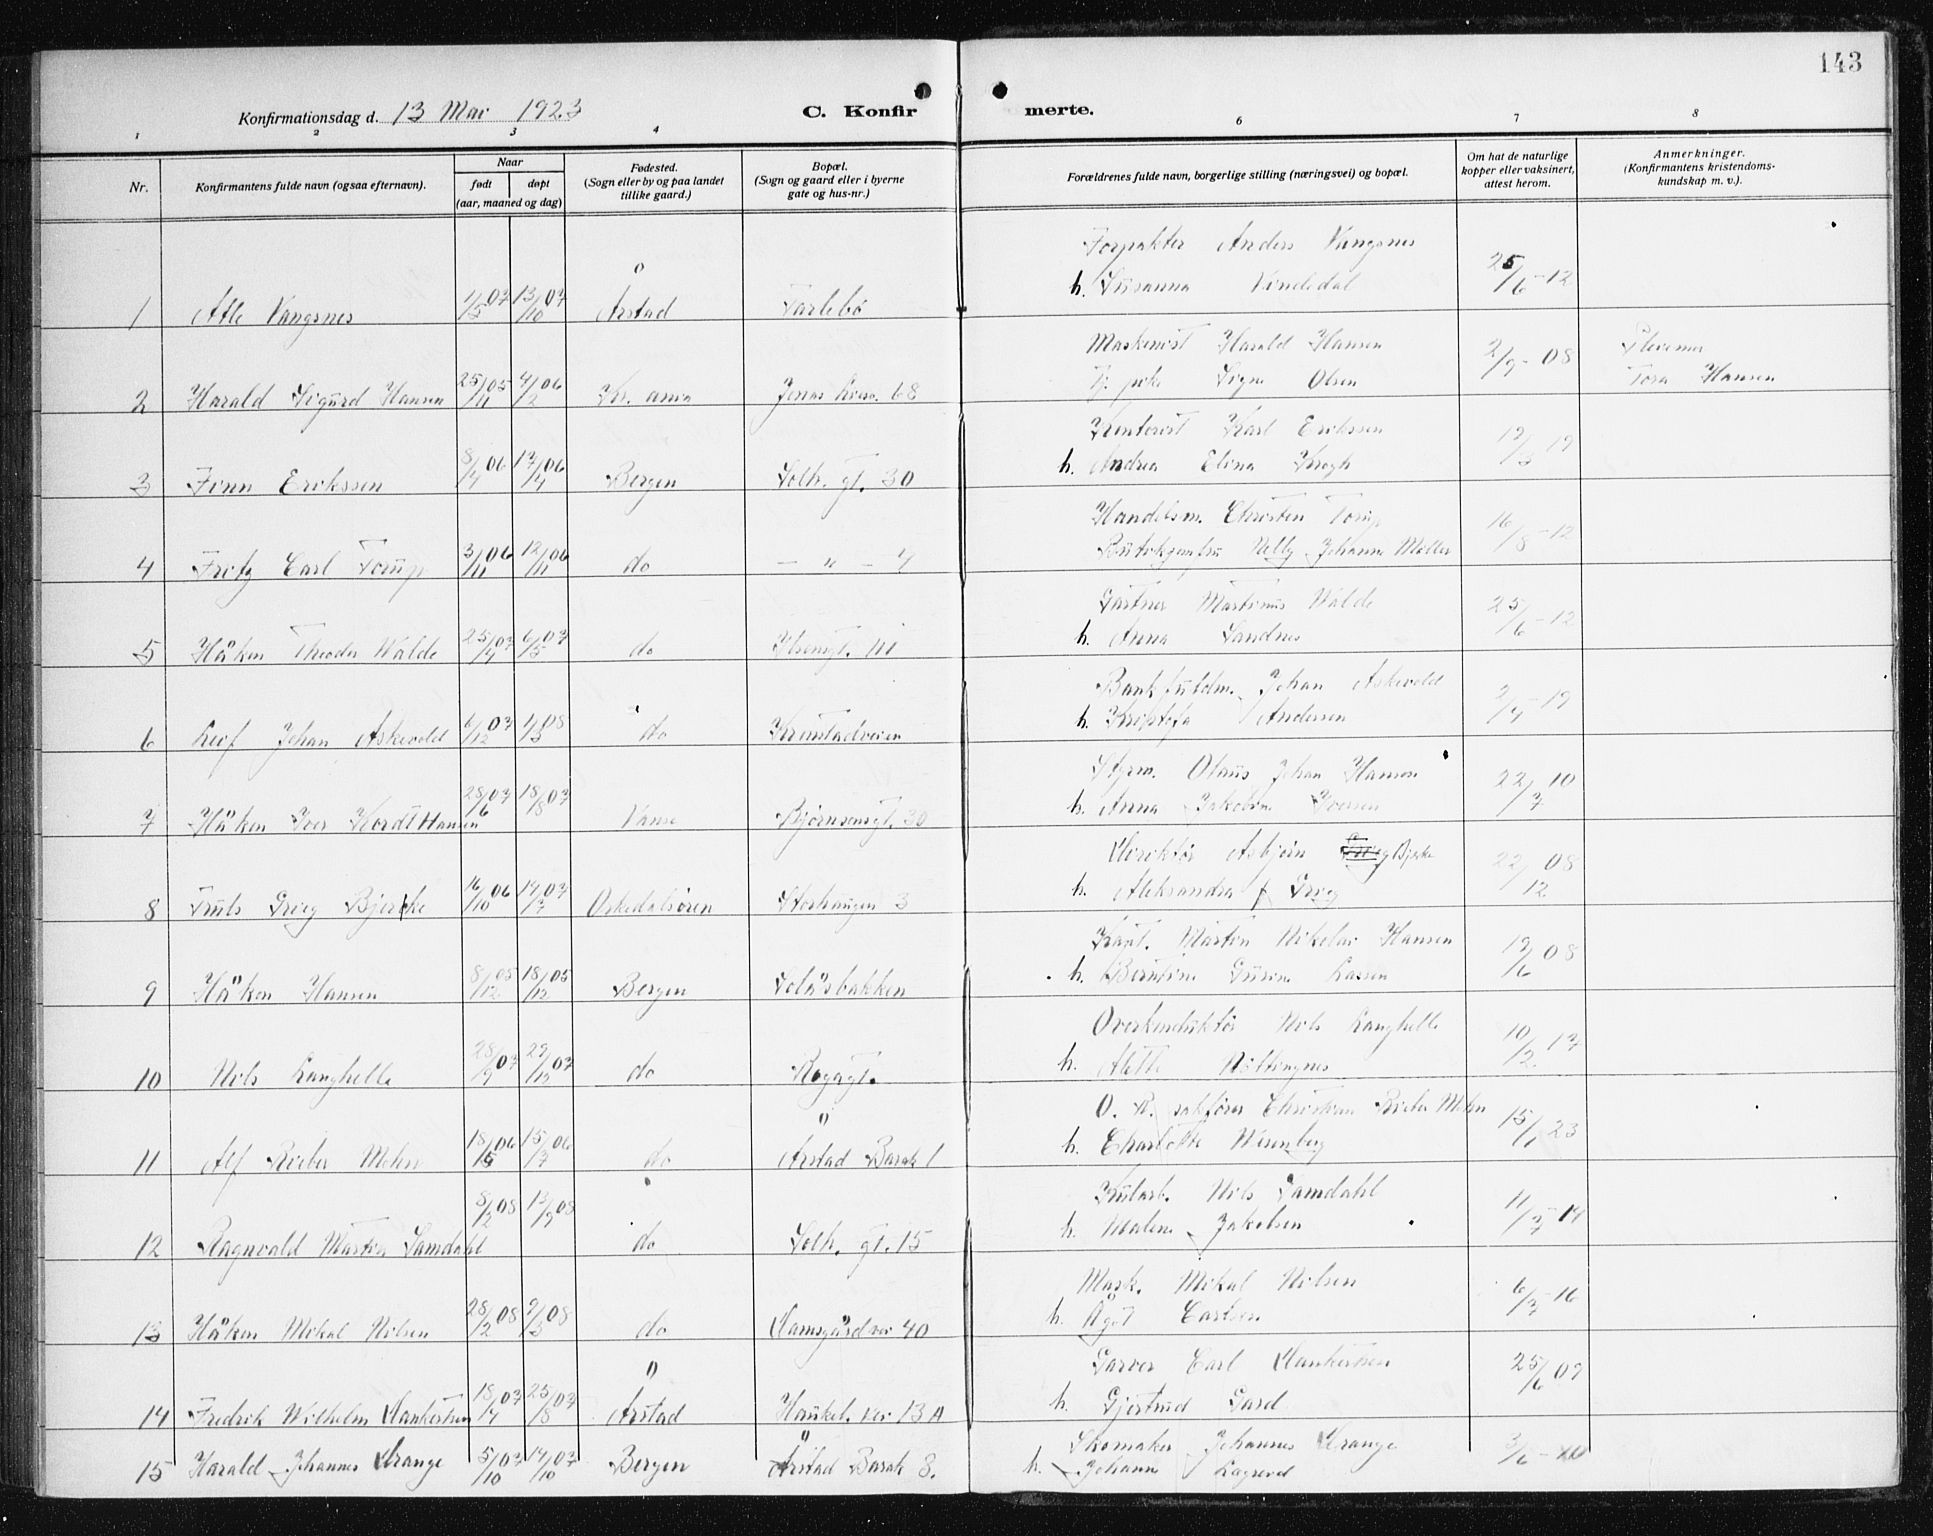 143
Konfirmationsdag d. 13 Mai 1923 C. Konfirmerte.
1 2 3 4 6 7 8
Nr. Konfirmantens fulde navn (ogsaa efternavn). Naar født døpt (aar, maaned og dag) Fødested. (Sogn eller by og paa landet tillike gaard.) Bopæl. (Sogn og gaard eller i byerne gate og hus-nr.) Forældrenes fulde navn, borgerlige stilling (næringsvei) og bopæl. Om hat de naturlige kopper eller vaksinert, attest herom. Anmerkninger. (Konfirmantens kristendoms-kundskap m. v.).
Forpakter Anders Vangsnes
1 Atle Vangsnes 1/5 07 13/10 07 Årstad Tarlebø h. Susanna Vindedal 25/6-12
Maskinist Harald Hansen
2 Harald Sigurd Hansen 25/11 05 4/2 06 Kr.ania Jonas Liesv. 68 Tj. pike Signe Olsen 2/9-08 Tora Hansen
Kontorist Karl Erikssen
3 Finn Erikssen 8/4 06 17/4 06 Bergen Solh. gt. 30 h. Andrea Elina Krogh 19/3 19
Handelsm. Christen Torup
4 Fritz Carl Torup 3/11 06 12/11 06 do — " — 7 Nelly Johanne Møller 16/8-12
Gartner Martinus Walde
5 Håkon Theodor Walde 25/4 07 6/5 07 do Ibsensgt. h. Anna Sandnes 25/6-12
Bankfuldm. Johan Askevold
6 Leif Johan Askevold 6/12 07 1/3 08 do Kronstadveien h. Kristofa Andersen 19
Styrm. Olaus Johan Hansen
7 Håkon Iver Kordt Hansen 28/6 07 18/8 07 Vanse Bjørnsonsgt. 30 h. Anna Jakobine Iversen 22/7 10
Direktør Asbjørn Bjerke
8 Truls Grieg Bjercke 16/10 06 14/7 07 Orkedalsøren Storhaugen 3 h. Aleksandra f Grieg 22/12 08
Kapt. Martin Nikolai Hansen
9 Håkon Hansen 8/12 05 18/12 05 Bergen Solåsbakken h. Berntine Gurine Larsen 19/6 08
Overkonduktør Nils Langhelle
10 Nils Langhelle 28/9 07 29/12 07 do Rogagt. h. Alette Nottingnes 10/2 17
O. R. sakfører Christian Rieber Mohn
11 Alf Rieber Mohn 18/5 06 15/7 06 do Årstad Barak 1 h. Charlotte Wesenberg 15/1 23
Kularb. Nils Samdahl
12 Ragnvald Martin Samdahl 8/2 08 17/9 08 do Solh. gt. 15 h. Malene Jakobsen 11/7-14
Mask. Mikal Nilsen
13 Håkon Mikal Nilsen 28/2 08 9/3 08 do Damsgårdvei 40 h. Ågot Carlsen 6/7-16
Garver Carl Dankertsen
14 Fredrik Wilhelm Dankertsen 18/7 07 25/8 07 Årstad Haukel. vei 13 A h. Gjertrud Gard 25/6 09
Skomaker Johannes Drange
15 Harald Johannes Drange 5/10 07 14/10 07 Bergen Årstad Barak 8. h. Johanne 3/6-10